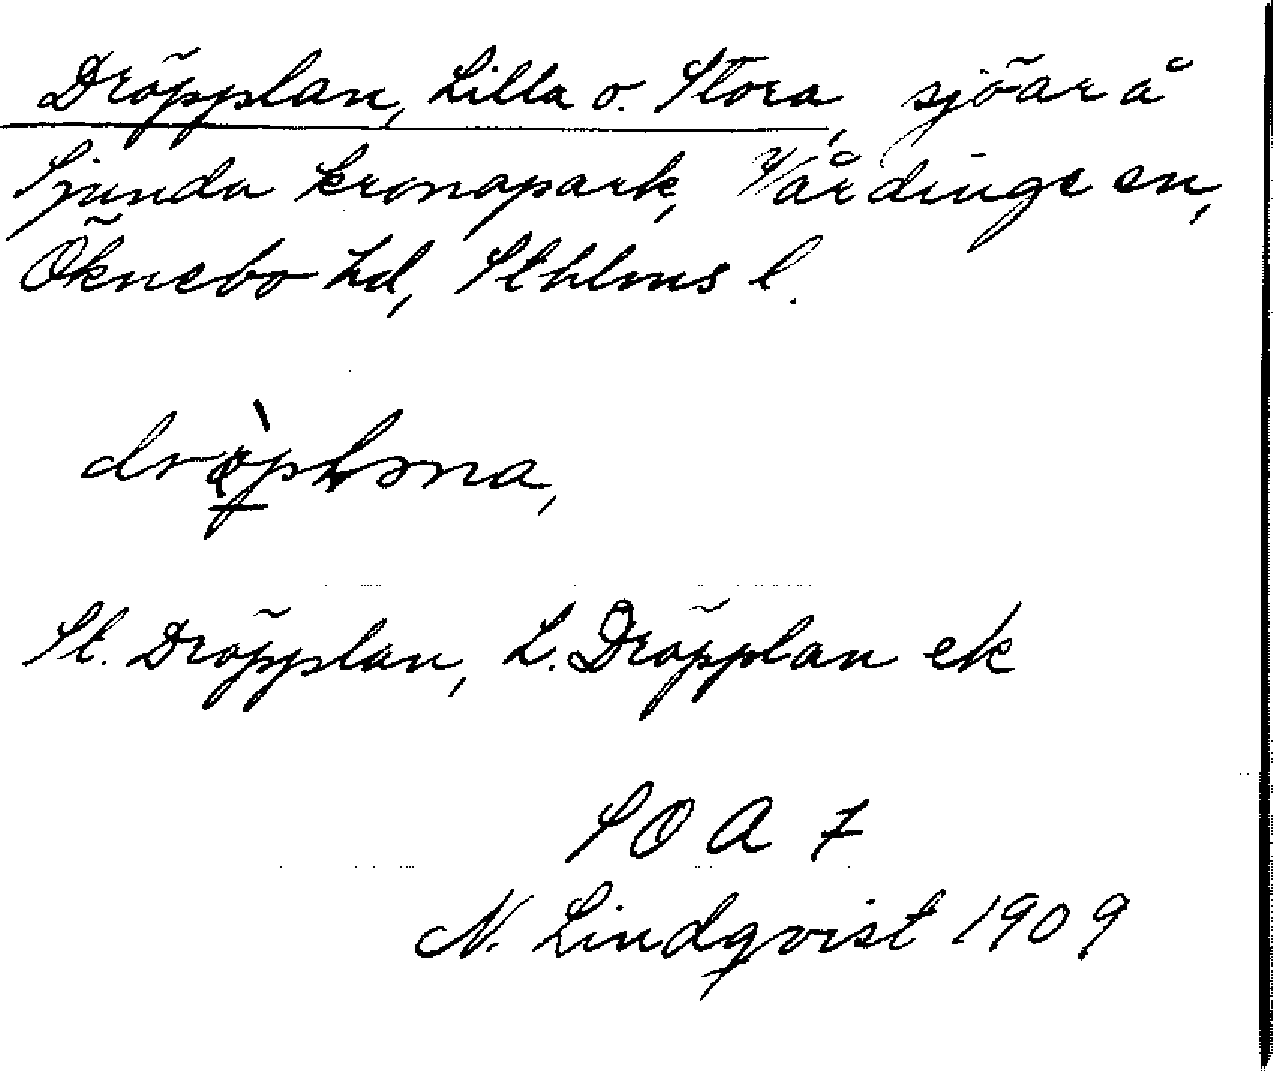 Dröpplan, Lilla o. Stora, sjöar å
Sjunda kronopark, Vårdinge sn,
Öknebo hd, Sthlms l.
St. Dröpplan, L. Dröpplan ek
SOA 7
N. Lindqvist 1909